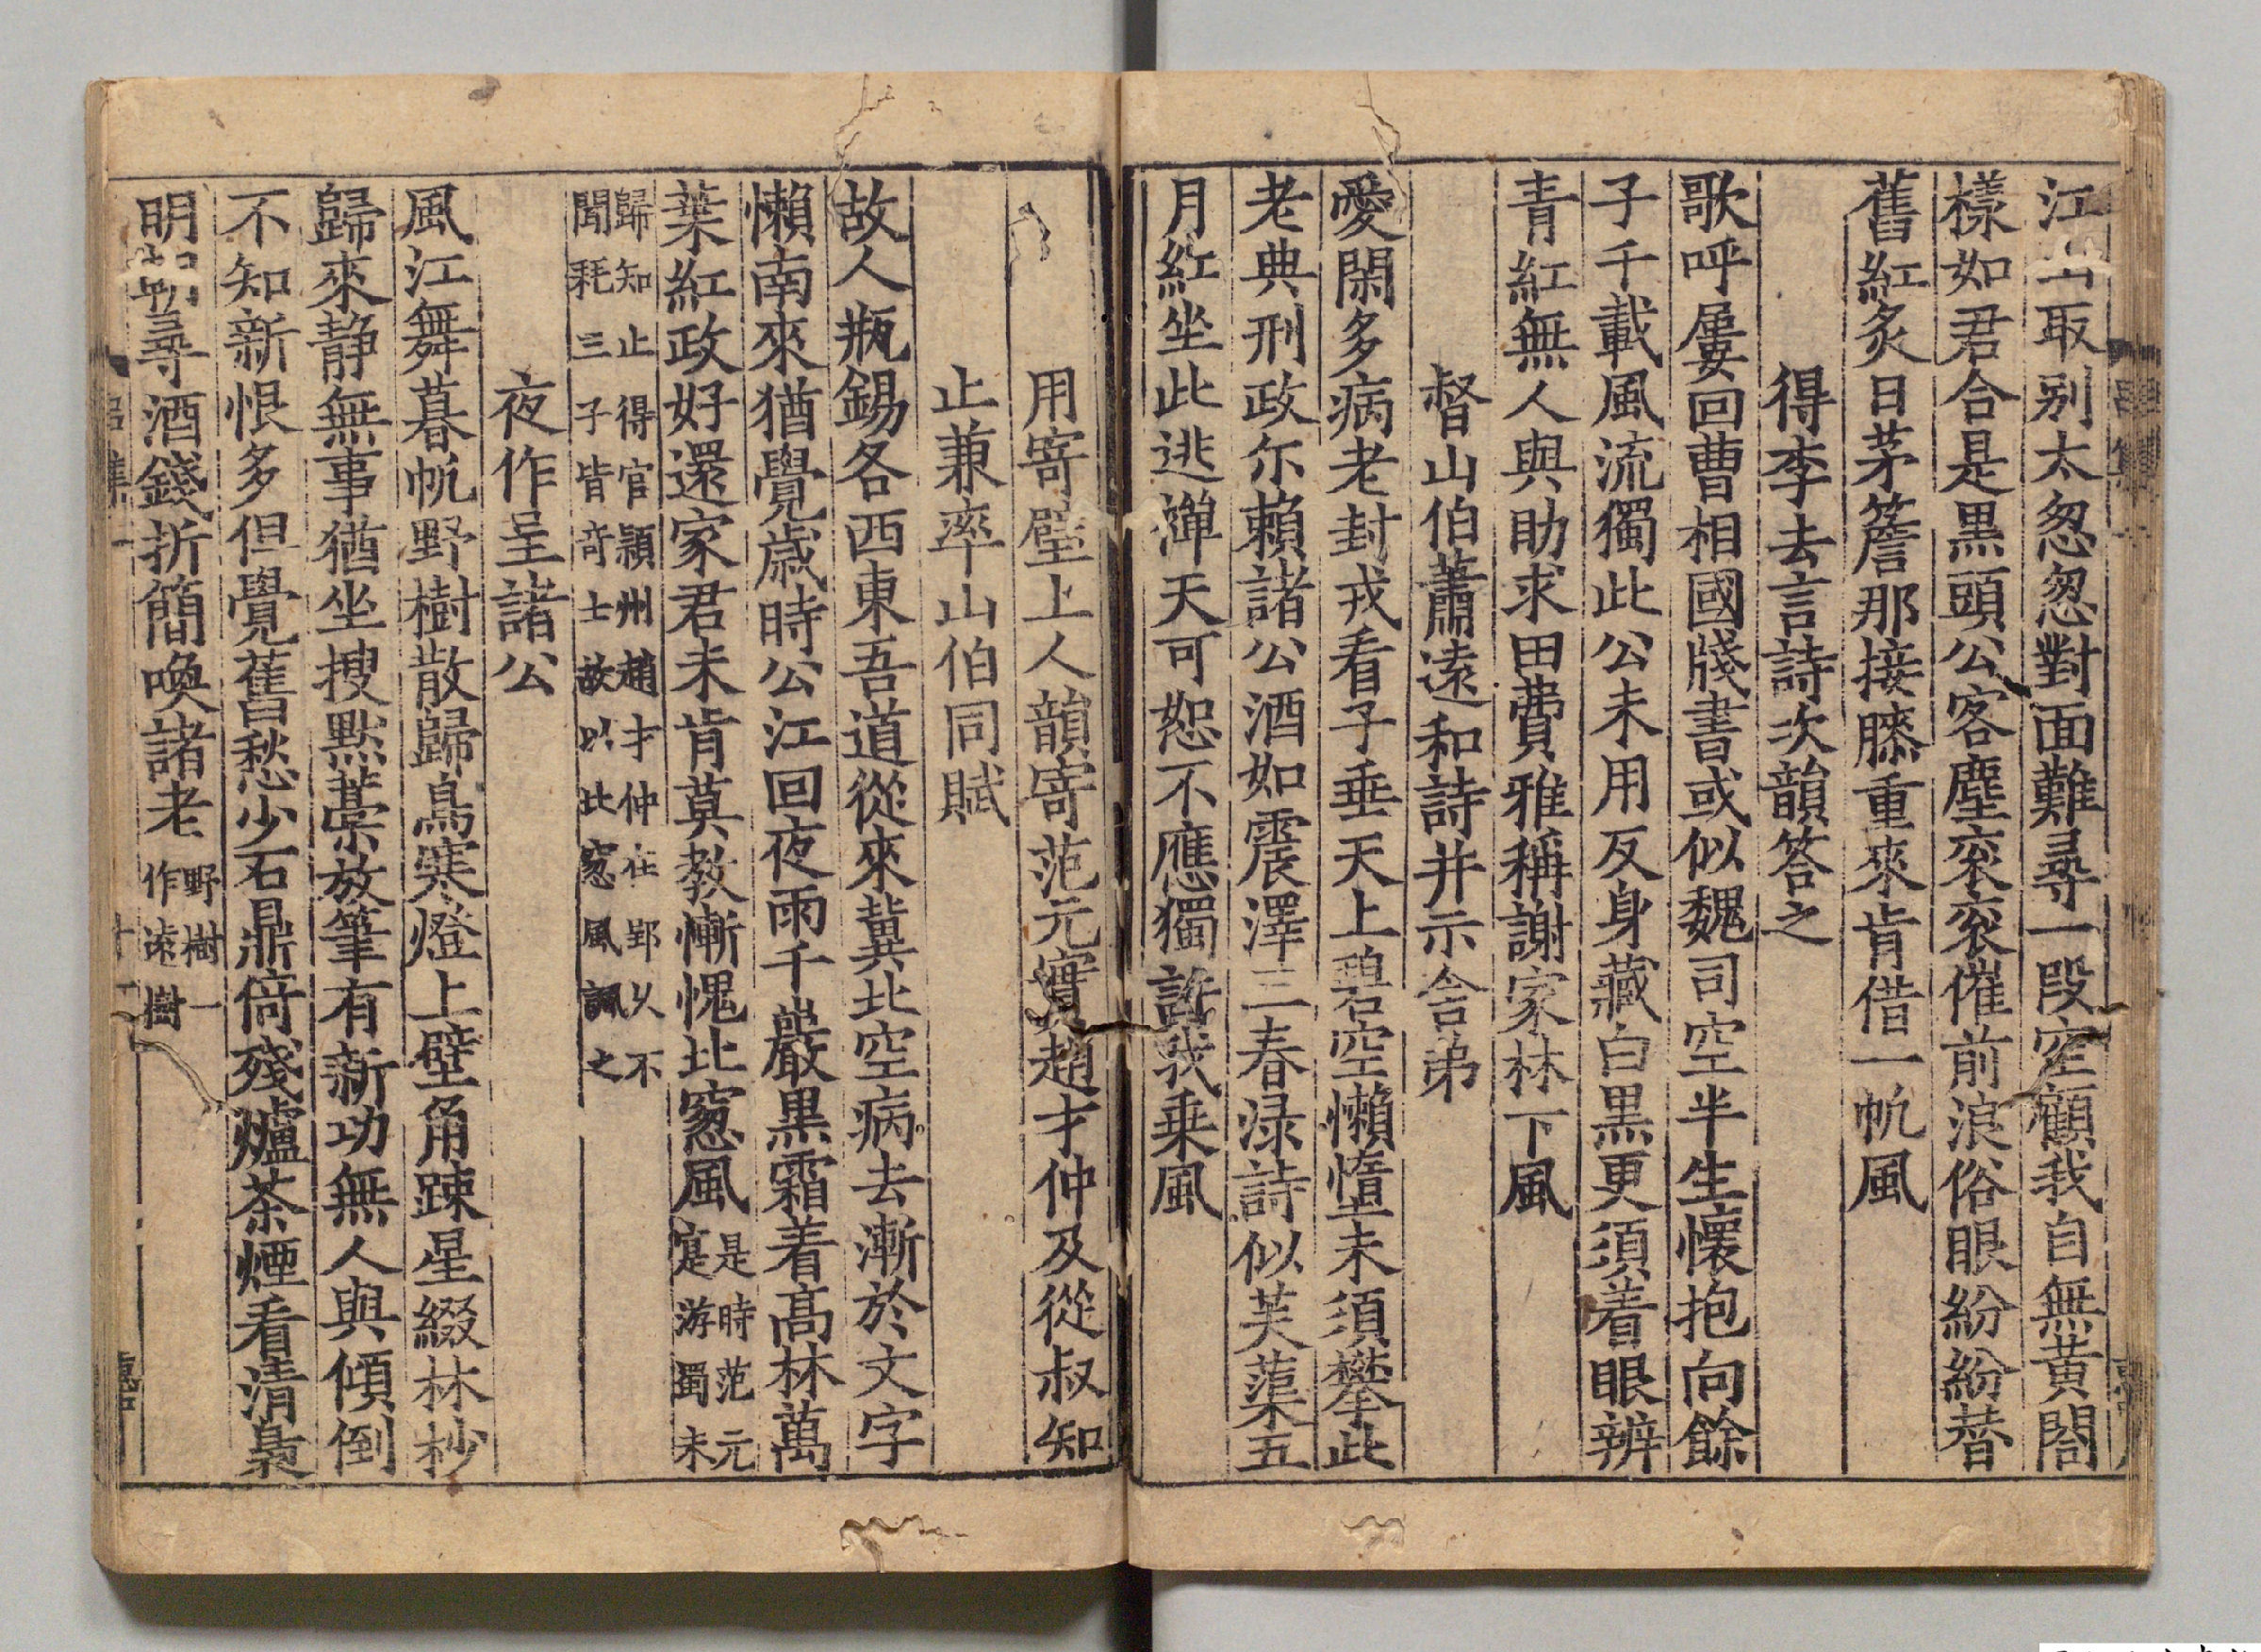 江山取别太怱怱對面難尋一段空顧我自無黃閤
樣如君合是黒頭公客塵衮衮催前浪俗眼紛紛替
舊紅炙日茅簷那接膝重來肯借一帆風
得李去言詩次韻答之
歌呼屢回曹相國牋書或似魏司空半生懷抱向餘
子千載風流獨此公未用反身藏白黒更須着眼辨
青紅無人與助求田費雅稱謝家林下風
督山伯蕭遠和詩并示舍弟
愛閑多病老封戎看子垂天上碧空懶惰未須攀此
老典刑政尓賴諸公酒如震澤三春渌詩似芙蕖五
月紅坐此逃禪天可恕不應獨許我乗風
用寄璧上人韻寄范元實趙才仲及從叔知
止兼率山伯同賦
故人瓶錫各西東吾道從來冀北空病去漸於文字
懶南來猶覺歳時公江回夜雨千巖黒霜着髙林萬
葉紅政好還家君未肯莫教慚愧北窻風是時范元
寔游蜀未
歸知止得官潁州趙才仲在郢以不
聞耗三子皆竒士故以此窓風諷之
夜作呈諸公
風江舞暮帆野樹散歸鳥寒燈上壁角踈星綴林杪
歸來静無事猶坐搜黙藁放筆有新功無人與傾倒
不知新恨多但覺舊愁少石鼎倚殘爐茶煙看清裊
明朝尋酒錢折簡喚諸老野樹一
作遠樹